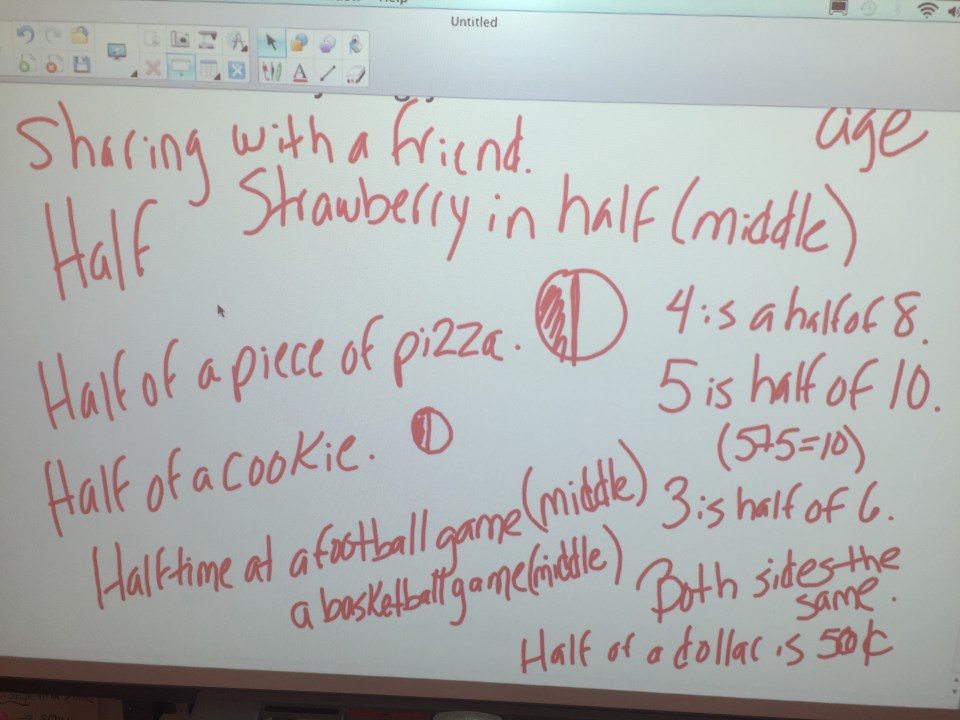 Untitled
age
Sharing with a friend.
Half
Strawberry in half (middle)
Half of a piece of pizza.
4 is a half of 8.
5 is half of 10.
(5+5=10)
Half of a cookie.
3 is half of 6.
Halftime at a football game (middle)
a basketball game (middle)
Both sides-the
same.
Half of a dollar is 50¢